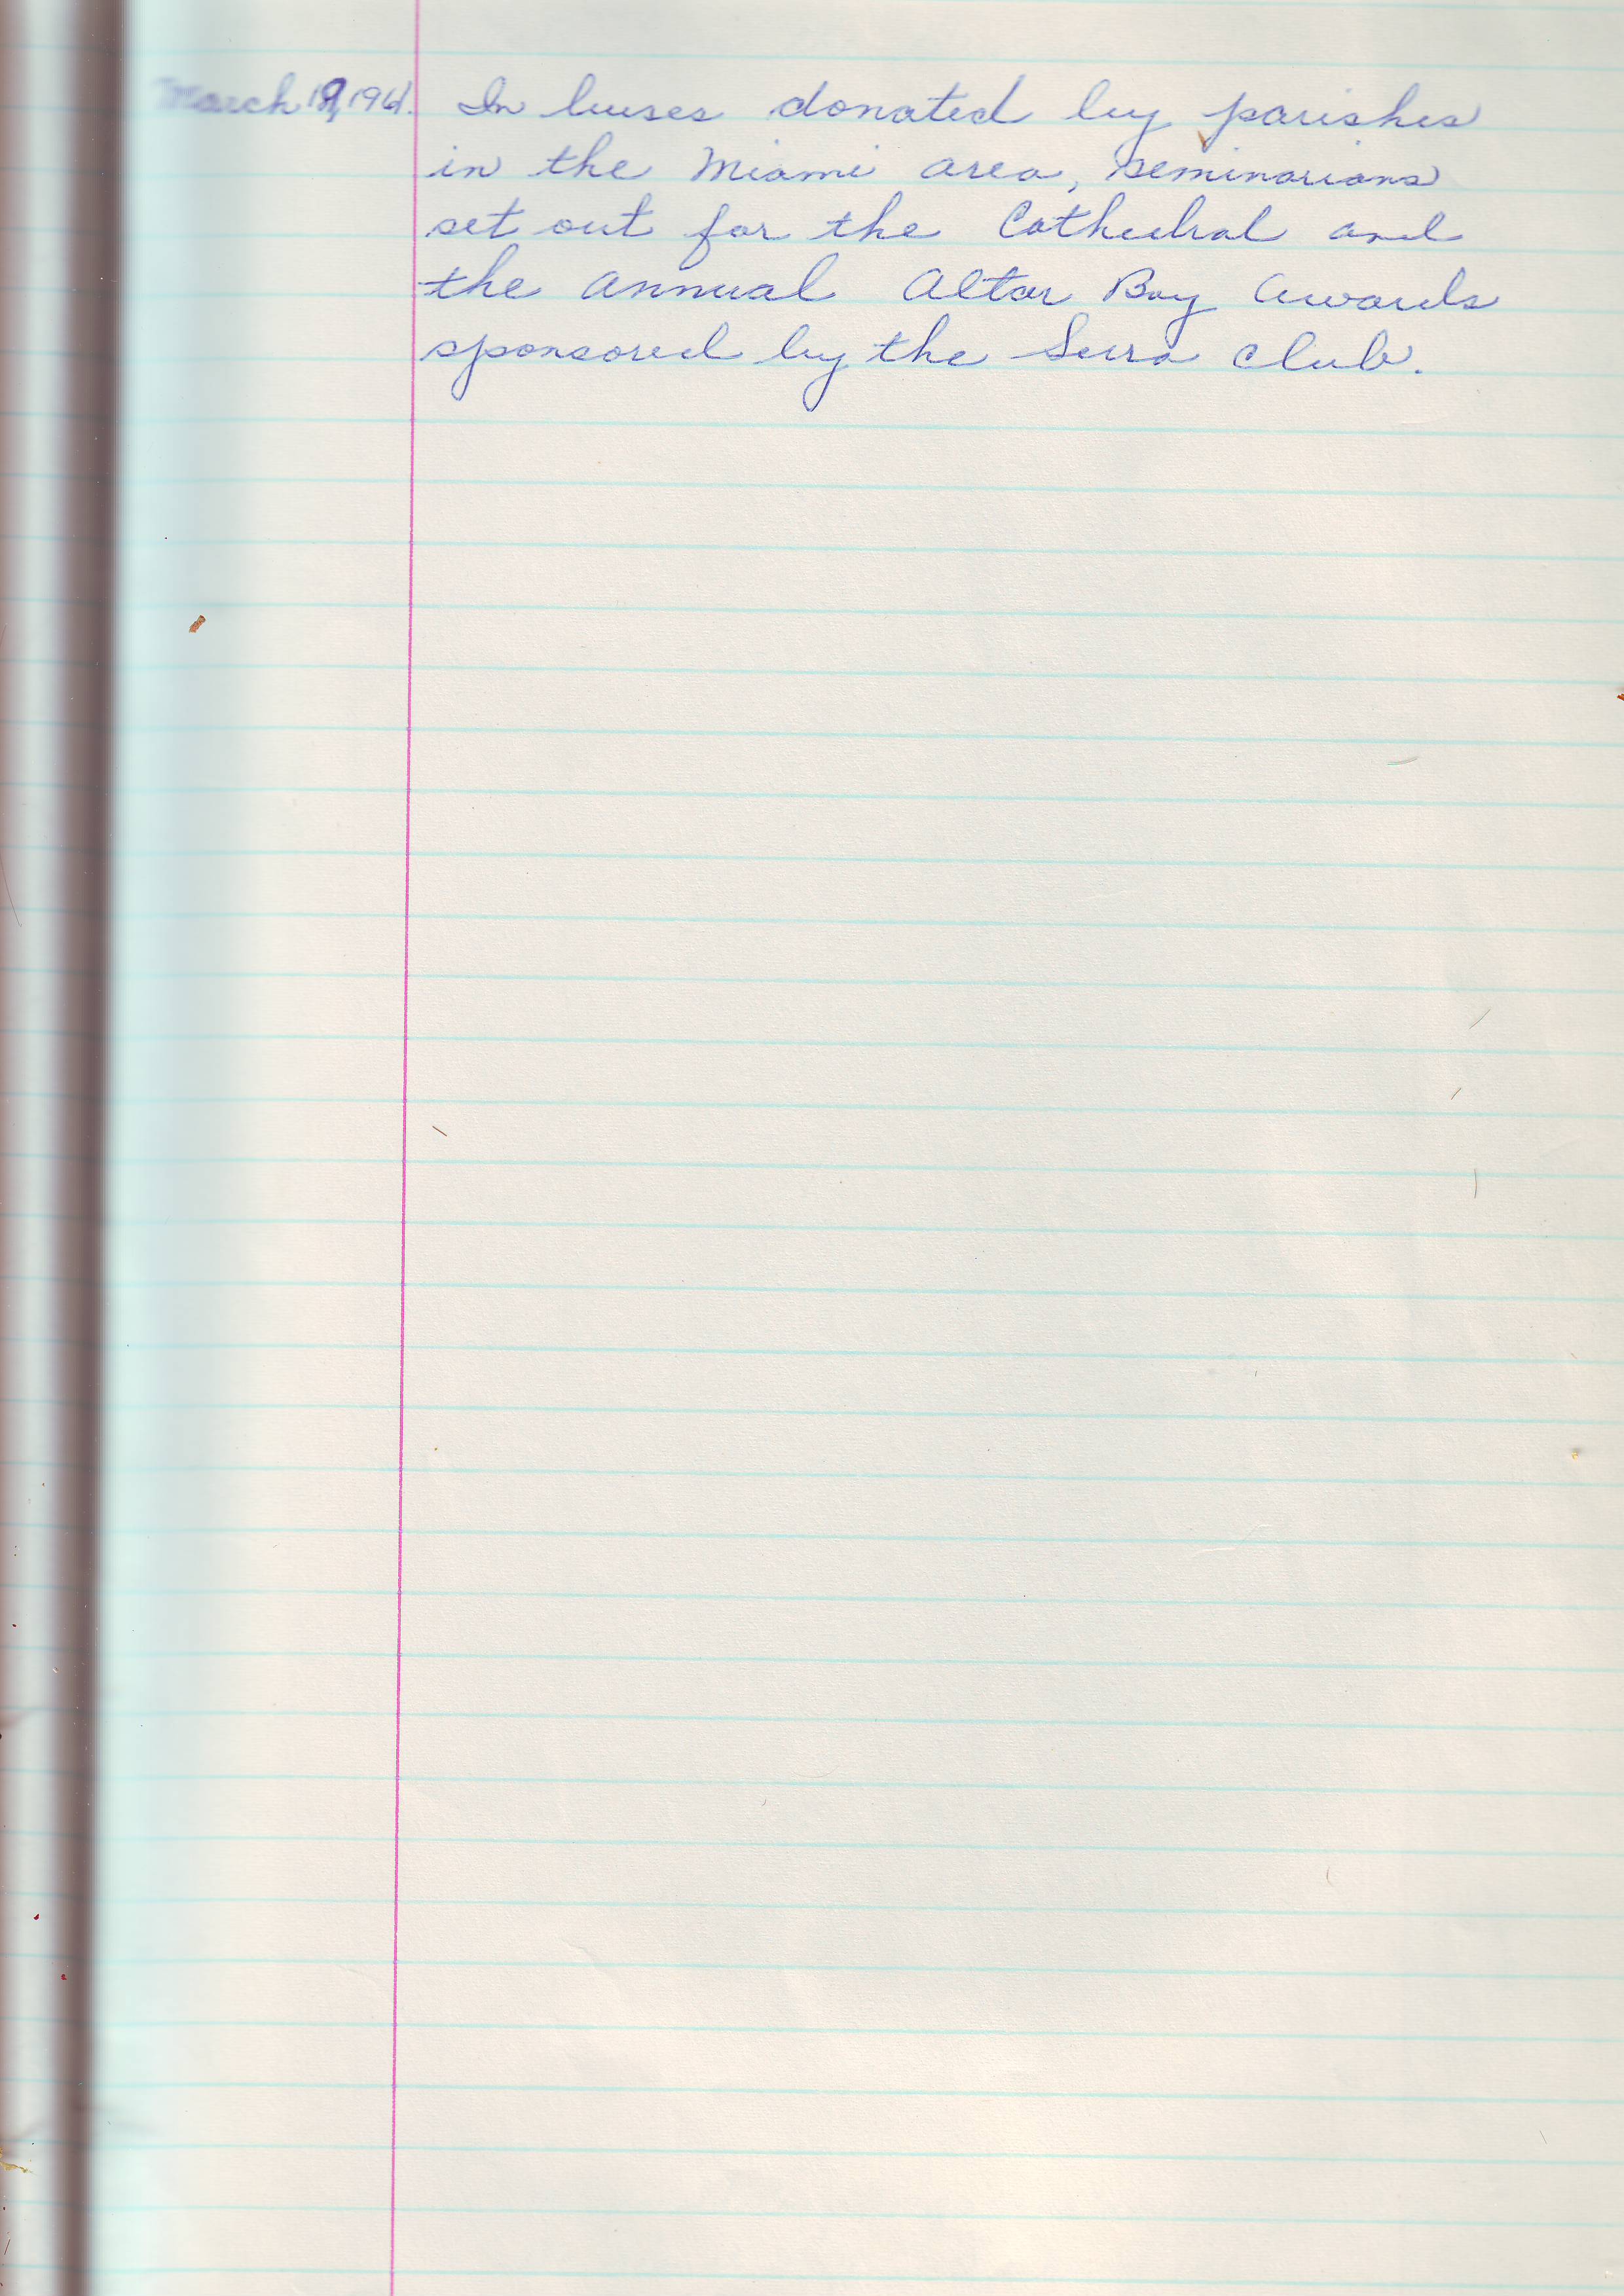 March 19, 1961. In buses donated by parishes
in the Miami area, seminarians
set out for the Cathedral and
the annual Altar Boy Awards
sponsored by the Serra Club.